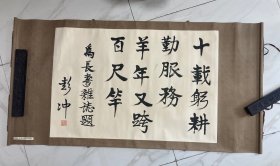 十载躬耕
勤服務
羊年又跨
百尺竿
為長壽雜誌題
彭冲